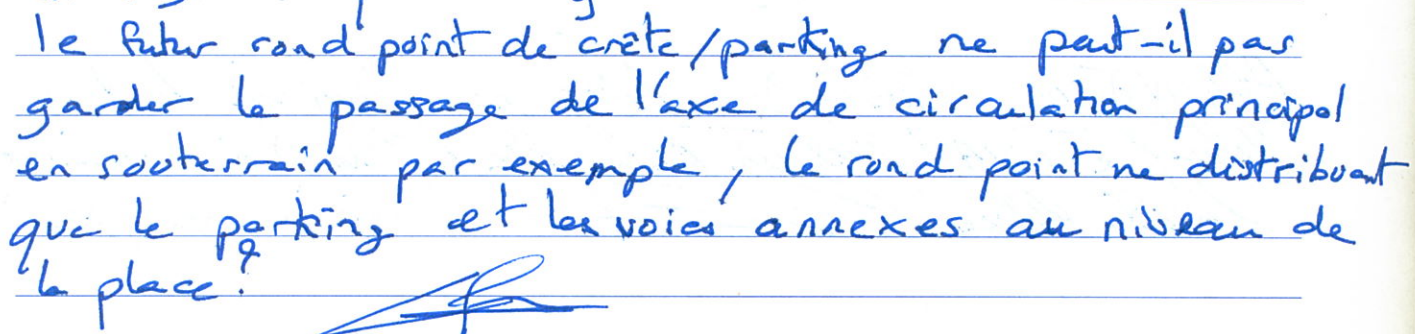 le futur rond point de crête/parking ne peut-il pas
garder le passage de l'axe de circulation principal
en souterrain par exemple, le rond point ne distribuant
que le parking et les voies annexes au niveau de
la place?